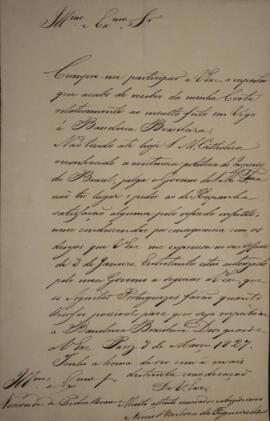 Ill.mo Ex.mo Sr
Cumpre-me participar a V.Exc. a resposta
que acabo de receber da minha Corte
relativamente ao insulto feito em Vigo
á Bandeira Brasileira.
Não tendo até hoje S. M. Catholica
reconhecido a existencia politica do Imperio
do Brasil, julga o Governo de S. A.
não ter lugar o pedir ao de Hespanha
satisfação alguma pelo referido insulto,
nem condescender por consequencia com os
desejos que V.Exc. me expressou no seu officio
de 3 de Janeiro. Entretanto estou autorizado
pelo meu Governo a segurar a V.Exc. que
os Agentes Portuguezes farão quanto
lhes for possivel para que seja respeitada
a Bandeira Brasileira. Deos guarde
a V.Exc. Pariz 8 de Março 1827.
Tenho a honra de ser com a mais
distincta consideração
De V.Exc.
Ill.mo Ex.mo Sr
Visconde da Pedra Branca Muito attento venerador e obrigado
Barbosa de Figueiredo